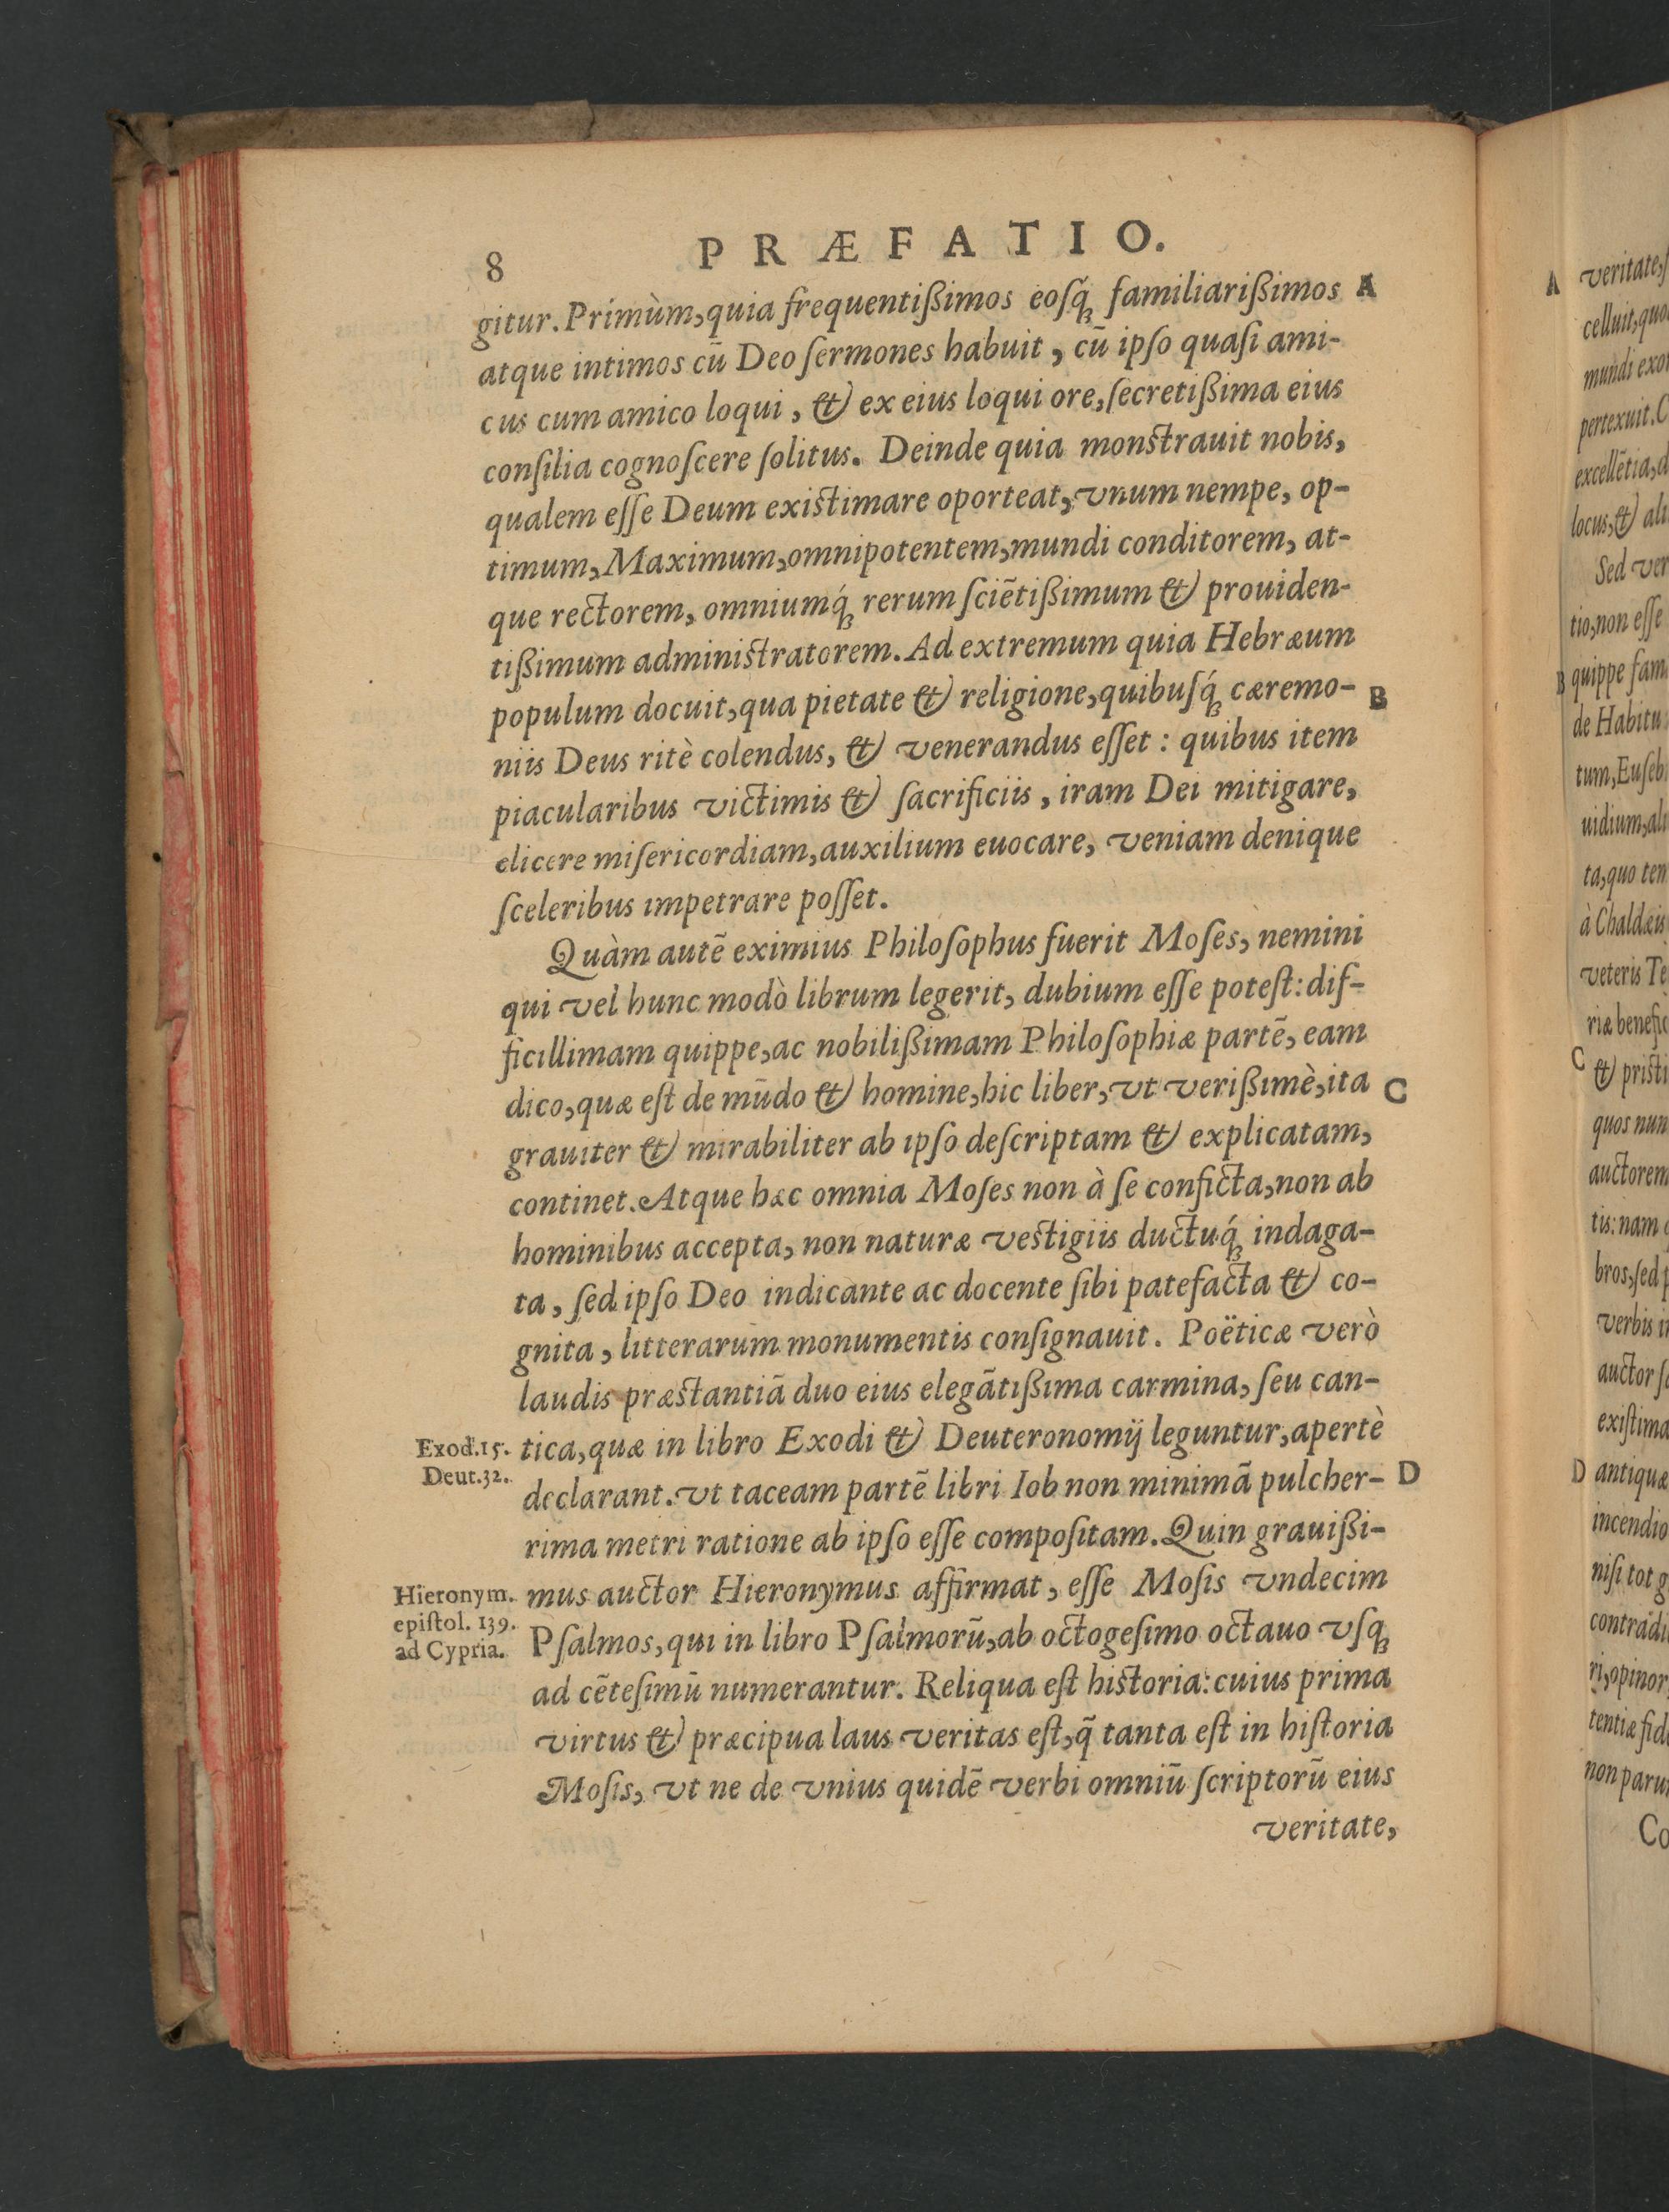 8 PRÆFATIO.
gitur. Primùm, quia frequentißimos eoſq́ꝫ familiarißimos A
atque intimos cū Deo ſermones habuit, cū ipſo quaſi ami-
cus cum amico loqui, & ex eius loqui ore, ſecretißima eius
conſilia cognoſcere ſolitus. Deinde quia monſtrauit nobis,
qualem eſſe Deum exiſtimare oporteat, vnum nempe, op-
timum, Maximum, omnipotentem, mundi conditorem, at-
que rectorem, omniumq́ꝫ rerum ſciētißimum & prouiden-
tißimum adminiſtratorem. Ad extremum quia Hebræum
populum docuit, qua pietate & religione, quibuſq́ꝫ cæremo- B
niis Deus ritè colendus, & venerandus eſſet: quibus item
piacularibus victimis & ſacrificiis, iram Dei mitigare,
elicere miſericordiam, auxilium euocare, veniam denique
ſceleribus impetrare poſſet.
Quàm autē eximius Philoſophus fuerit Moſes, nemini
qui vel hunc modò librum legerit, dubium eſſe poteſt: dif-
ficillimam quippe, ac nobilißimam Philoſophiæ partē, eam
dico, quæ eſt de mūdo & homine, hic liber, vt verißimè, ita C
grauiter & mirabiliter ab ipſo deſcriptam & explicatam,
continet. Atque hæc omnia Moſes non à ſe conficta, non ab
hominibus accepta, non naturæ veſtigiis ductuq́ꝫ indaga-
ta, ſed ipſo Deo indicante ac docente ſibi patefacta & co-
gnita, litterarum monumentis conſignauit. Poëticæ verò
laudis præſtantiā duo eius elegātißima carmina, ſeu can-
Exod.15. tica, quæ in libro Exodi & Deuteronomij leguntur, apertè
Deut.32. declarant. vt taceam partē libri Iob non minimā pulcher- D
rima metri ratione ab ipſo eſſe compoſitam. Quin grauißi-
Hieronym. mus auctor Hieronymus affirmat, eſſe Moſis vndecim
epiſtol. 139. Pſalmos, qui in libro Pſalmorū, ab octogeſimo octauo vſqꝫ
ad Cypria. ad cēteſimū numerantur. Reliqua eſt hiſtoria: cuius prima
virtus & præcipua laus veritas eſt, q̄ tanta eſt in hiſtoria
Moſis, vt ne de vnius quidē verbi omniū ſcriptorū eius
veritate,
A veritate,
celluit, quo
mundi exo
pertexuit. C
excellētia, a
locus, & ali
Sed ver
tio, non eſſe
B quippe fam
de Habitu
tum, Euſeb
uidium, ali
ta, quo tem
à Chaldæis
veteris Te
riæ benefic
C & priſti
quos nun
auctorem
tis: nam
bros, ſed
verbis i
auctor ſ
exiſtima
D antiquæ
incendio
niſi tot g
contradi
ri, opinor
tentiæ fid
non paru
Co